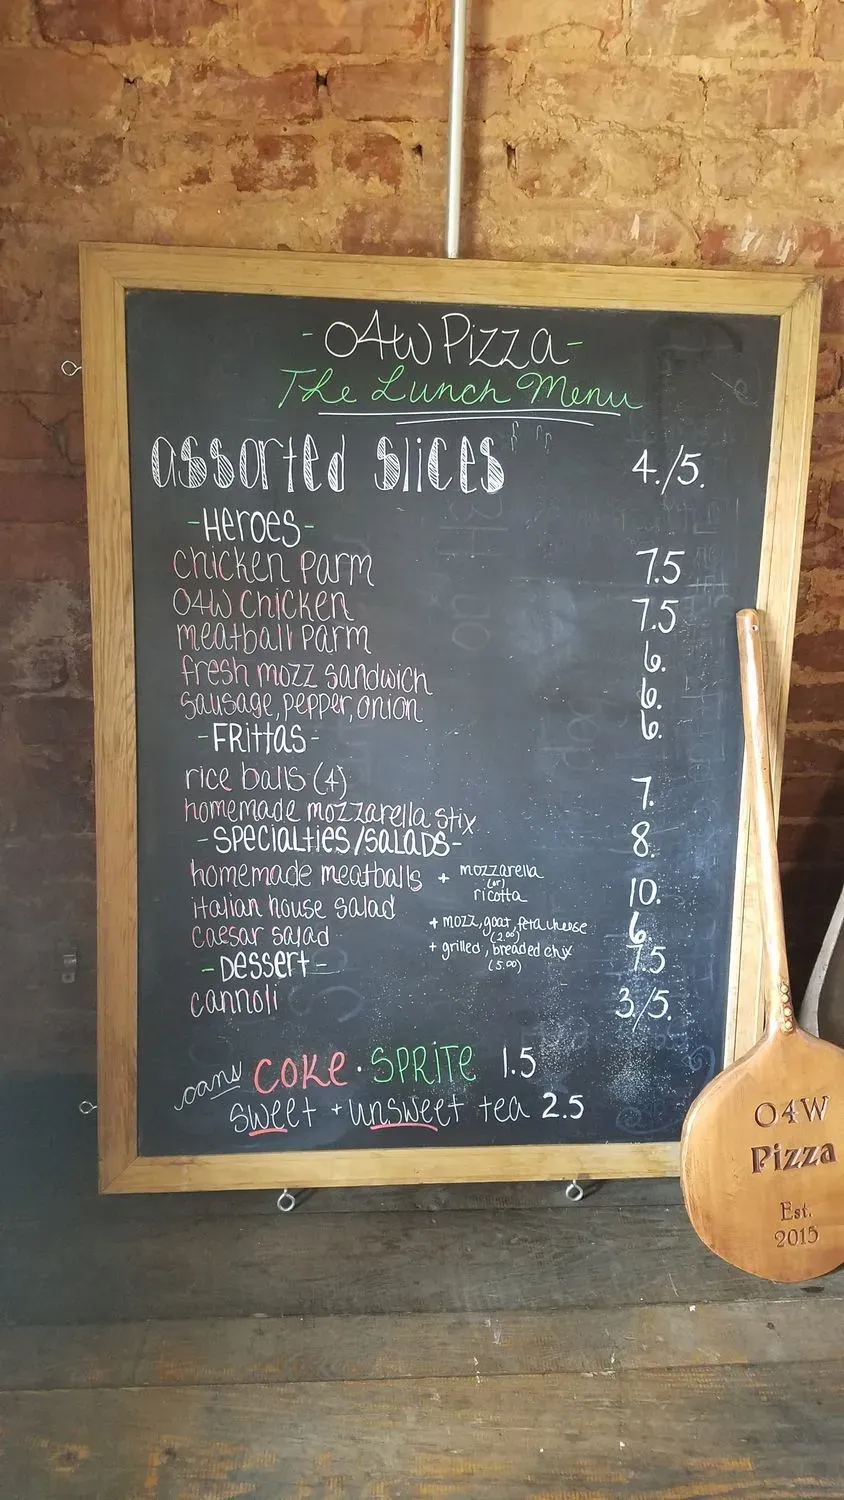 -O4W Pizza-
The Lunch Menu
assorted slices 4./5.
-Heroes-
chicken parm 7.5
O4W chicken 7.5
meatball parm 6.
fresh mozz sandwich 6.
sausage, pepper, onion 6.
-Frittas-
rice balls (4) 7.
homemade mozzarella stix 8.
-Specialties/Salads-
homemade meatballs + mozzarella (or) ricotta 10.
italian house salad 6
+ mozz, goat, feta cheese (2.00)
caesar salad 7.5
+ grilled, breaded chix (5.00)
-Dessert-
cannoli 3./5.
cans COKE · SPRITE 1.5
sweet + unsweet tea 2.5
O4W
Pizza
Est.
2015